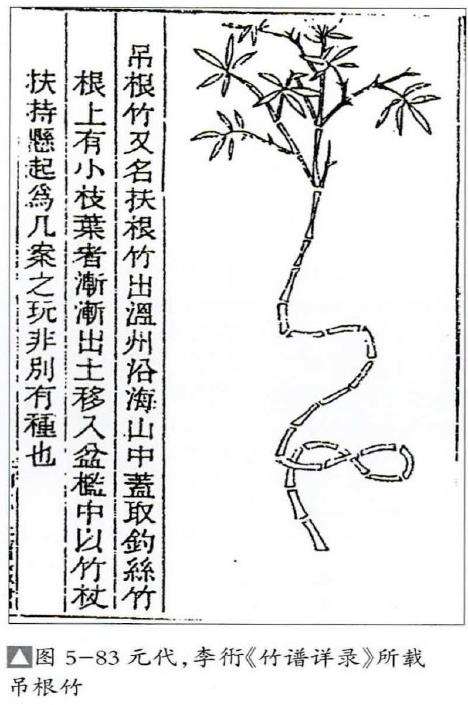 吊根竹又名扶根竹出溫州沿海山中蓋取釣絲竹
根上有小枝葉者漸漸出土移入盆檻中以竹杖
扶持懸起爲几案之玩非別有種也
图 5-83 元代,李衎《竹谱详录》所载
吊根竹